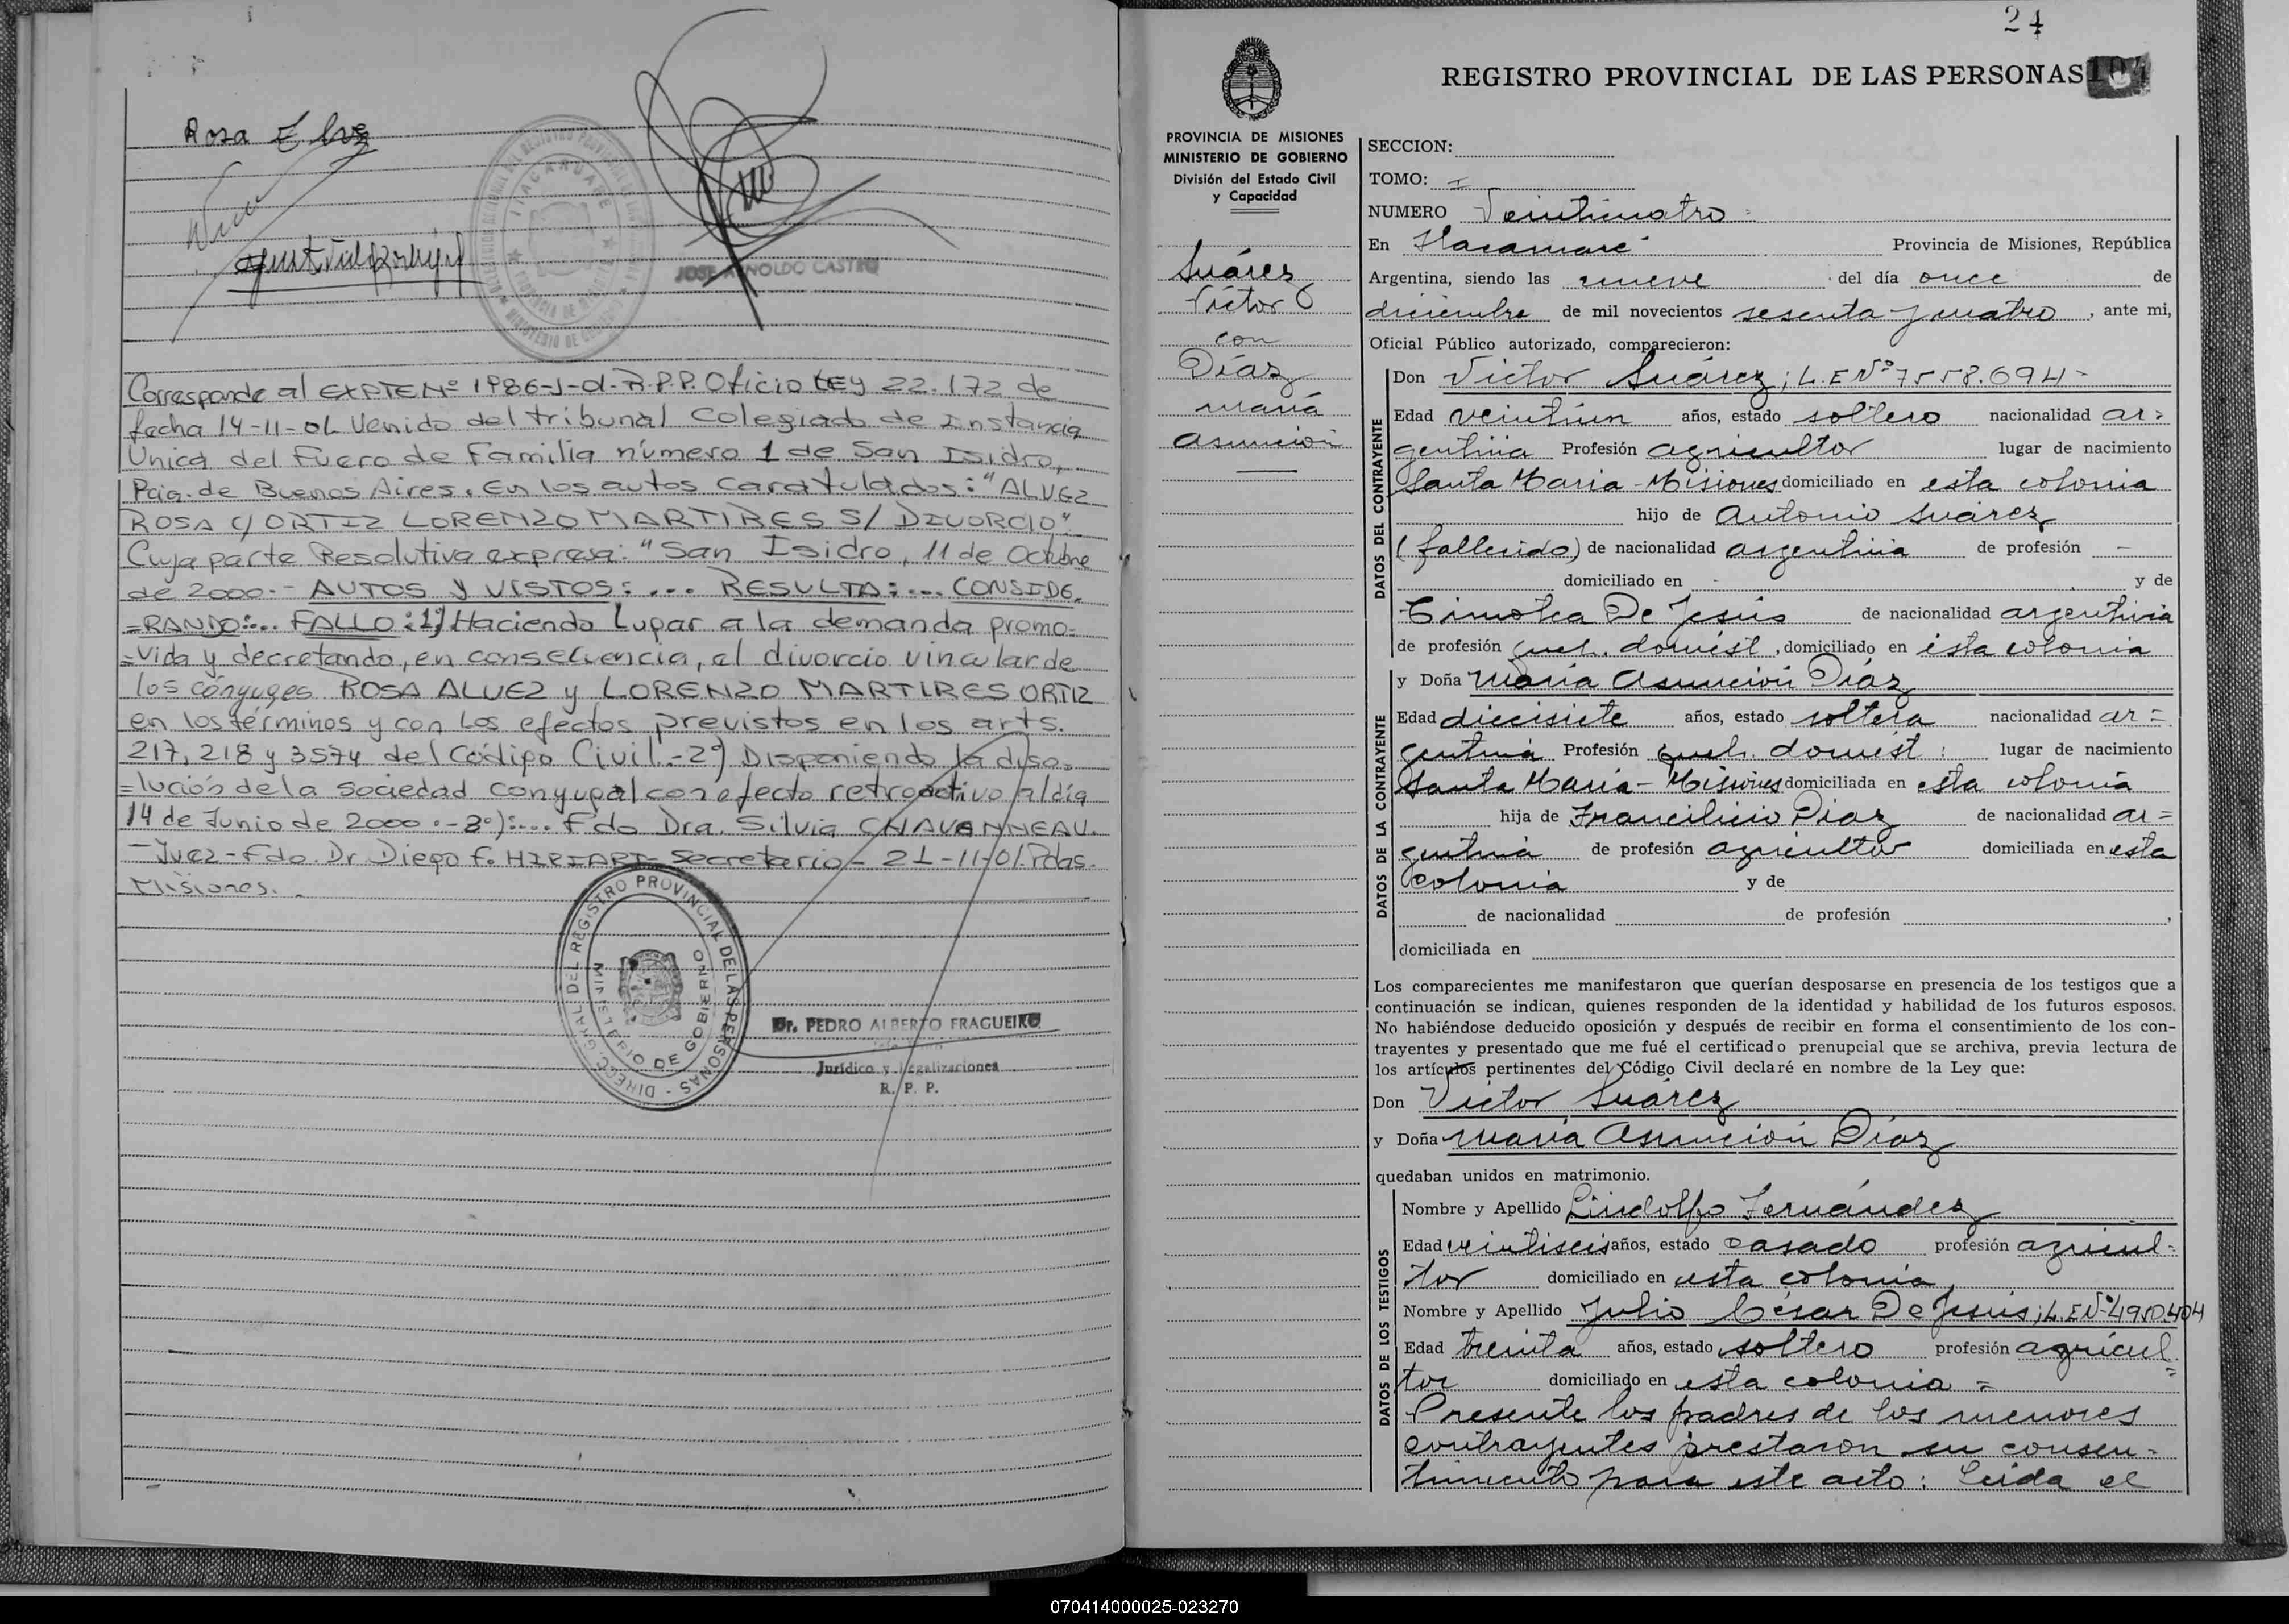 Rosa
JOSE ARNOLDO CASTRO
Corresponde al EXPTE Nº 1986-J-01-R.P.P. Oficio LEY 22.172 de
fecha 14-11-01 Venido del tribunal Colegiado de Instancia
Unica del Fuero de Familia número 1 de San Isidro,
Pcia. de Buenos Aires. En los autos Caratulados: "ALVEZ
ROSA C/ ORTIZ LORENZO MARTIRES S/ DIVORCIO".
Cuya parte Resolutiva expresa: "San Isidro, 11 de Octubre
de 2000.- AUTOS Y VISTOS: ... RESULTA: ... CONSIDE.
=RANDO:... FALLO: 1º) Haciendo Lugar a la demanda promo-
=vida y decretando, en consecuencia, el divorcio vincular de
los cónyuges ROSA ALVEZ y LORENZO MARTIRES ORTIZ
en los términos y con los efectos previstos en los arts.
217, 218 y 3574 del Código Civil.-2º) Disponiendo la diso-
=lución de la Sociedad conyugal con efecto retroactivo al día
14 de Junio de 2000.-3º):... Fdo Dra. Silvia CHAVANNEAU.
-Juez-Fdo. Dr Diego F. HIRIART- Secretario- 21-11-01. Pdas.
Misiones.
DIRECC. GRAL DEL REGISTRO PROVINCIAL DE LAS PERSONAS
MINISTERIO DE GOBIERNO
Dr. PEDRO ALBERTO FRAGUEIRO
Jurídico y Legalizaciones
R. P. P.
24
REGISTRO PROVINCIAL DE LAS PERSONAS
PROVINCIA DE MISIONES
MINISTERIO DE GOBIERNO
División del Estado Civil
y Capacidad
Suárez
Víctor
con
Díaz
María
Asunción
SECCION:
TOMO: I
NUMERO Veinticuatro
En Itacaruaré Provincia de Misiones, República
Argentina, siendo las nueve del día once de
diciembre de mil novecientos sesenta y cuatro, ante mi,
Oficial Público autorizado, comparecieron:
DATOS DEL CONTRAYENTE
Don Víctor Suárez; L.E Nº 7558.694-
Edad veintiún años, estado soltero nacionalidad ar=
gentina Profesión agricultor lugar de nacimiento
Santa María - Misiones domiciliado en esta colonia
hijo de Antonio Suárez
(fallecido) de nacionalidad argentina de profesión -
domiciliado en y de
Timotea De Jesús de nacionalidad argentina
de profesión queh. domést, domiciliado en esta colonia
DATOS DE LA CONTRAYENTE
y Doña María Asunción Díaz
Edad diecisiete años, estado soltera nacionalidad ar=
gentina Profesión queh. domést: lugar de nacimiento
Santa María - Misiones domiciliada en esta colonia
hija de Díaz de nacionalidad ar=
gentina de profesión agricultor domiciliada en esta
colonia y de
de nacionalidad de profesión ,
domiciliada en
Los comparecientes me manifestaron que querían desposarse en presencia de los testigos que a
continuación se indican, quienes responden de la identidad y habilidad de los futuros esposos.
No habiéndose deducido oposición y después de recibir en forma el consentimiento de los con-
trayentes y presentado que me fué el certificado prenupcial que se archiva, previa lectura de
los artículos pertinentes del Código Civil declaré en nombre de la Ley que:
Don Víctor Suárez
y Doña María Asunción Díaz
quedaban unidos en matrimonio.
DATOS DE LOS TESTIGOS
Nombre y Apellido Lindolfo Fernández
Edad veintiseis años, estado casado profesión agricul=
tor domiciliado en esta colonia,
Nombre y Apellido Julio César De Jesús; L.E Nº 4950.404
Edad treinta años, estado soltero profesión agricul=
tor domiciliado en esta colonia =
Presente los padres de los menores
contrayentes prestaron su consen-
timiento para este acto: Leída el
070414000025-023270